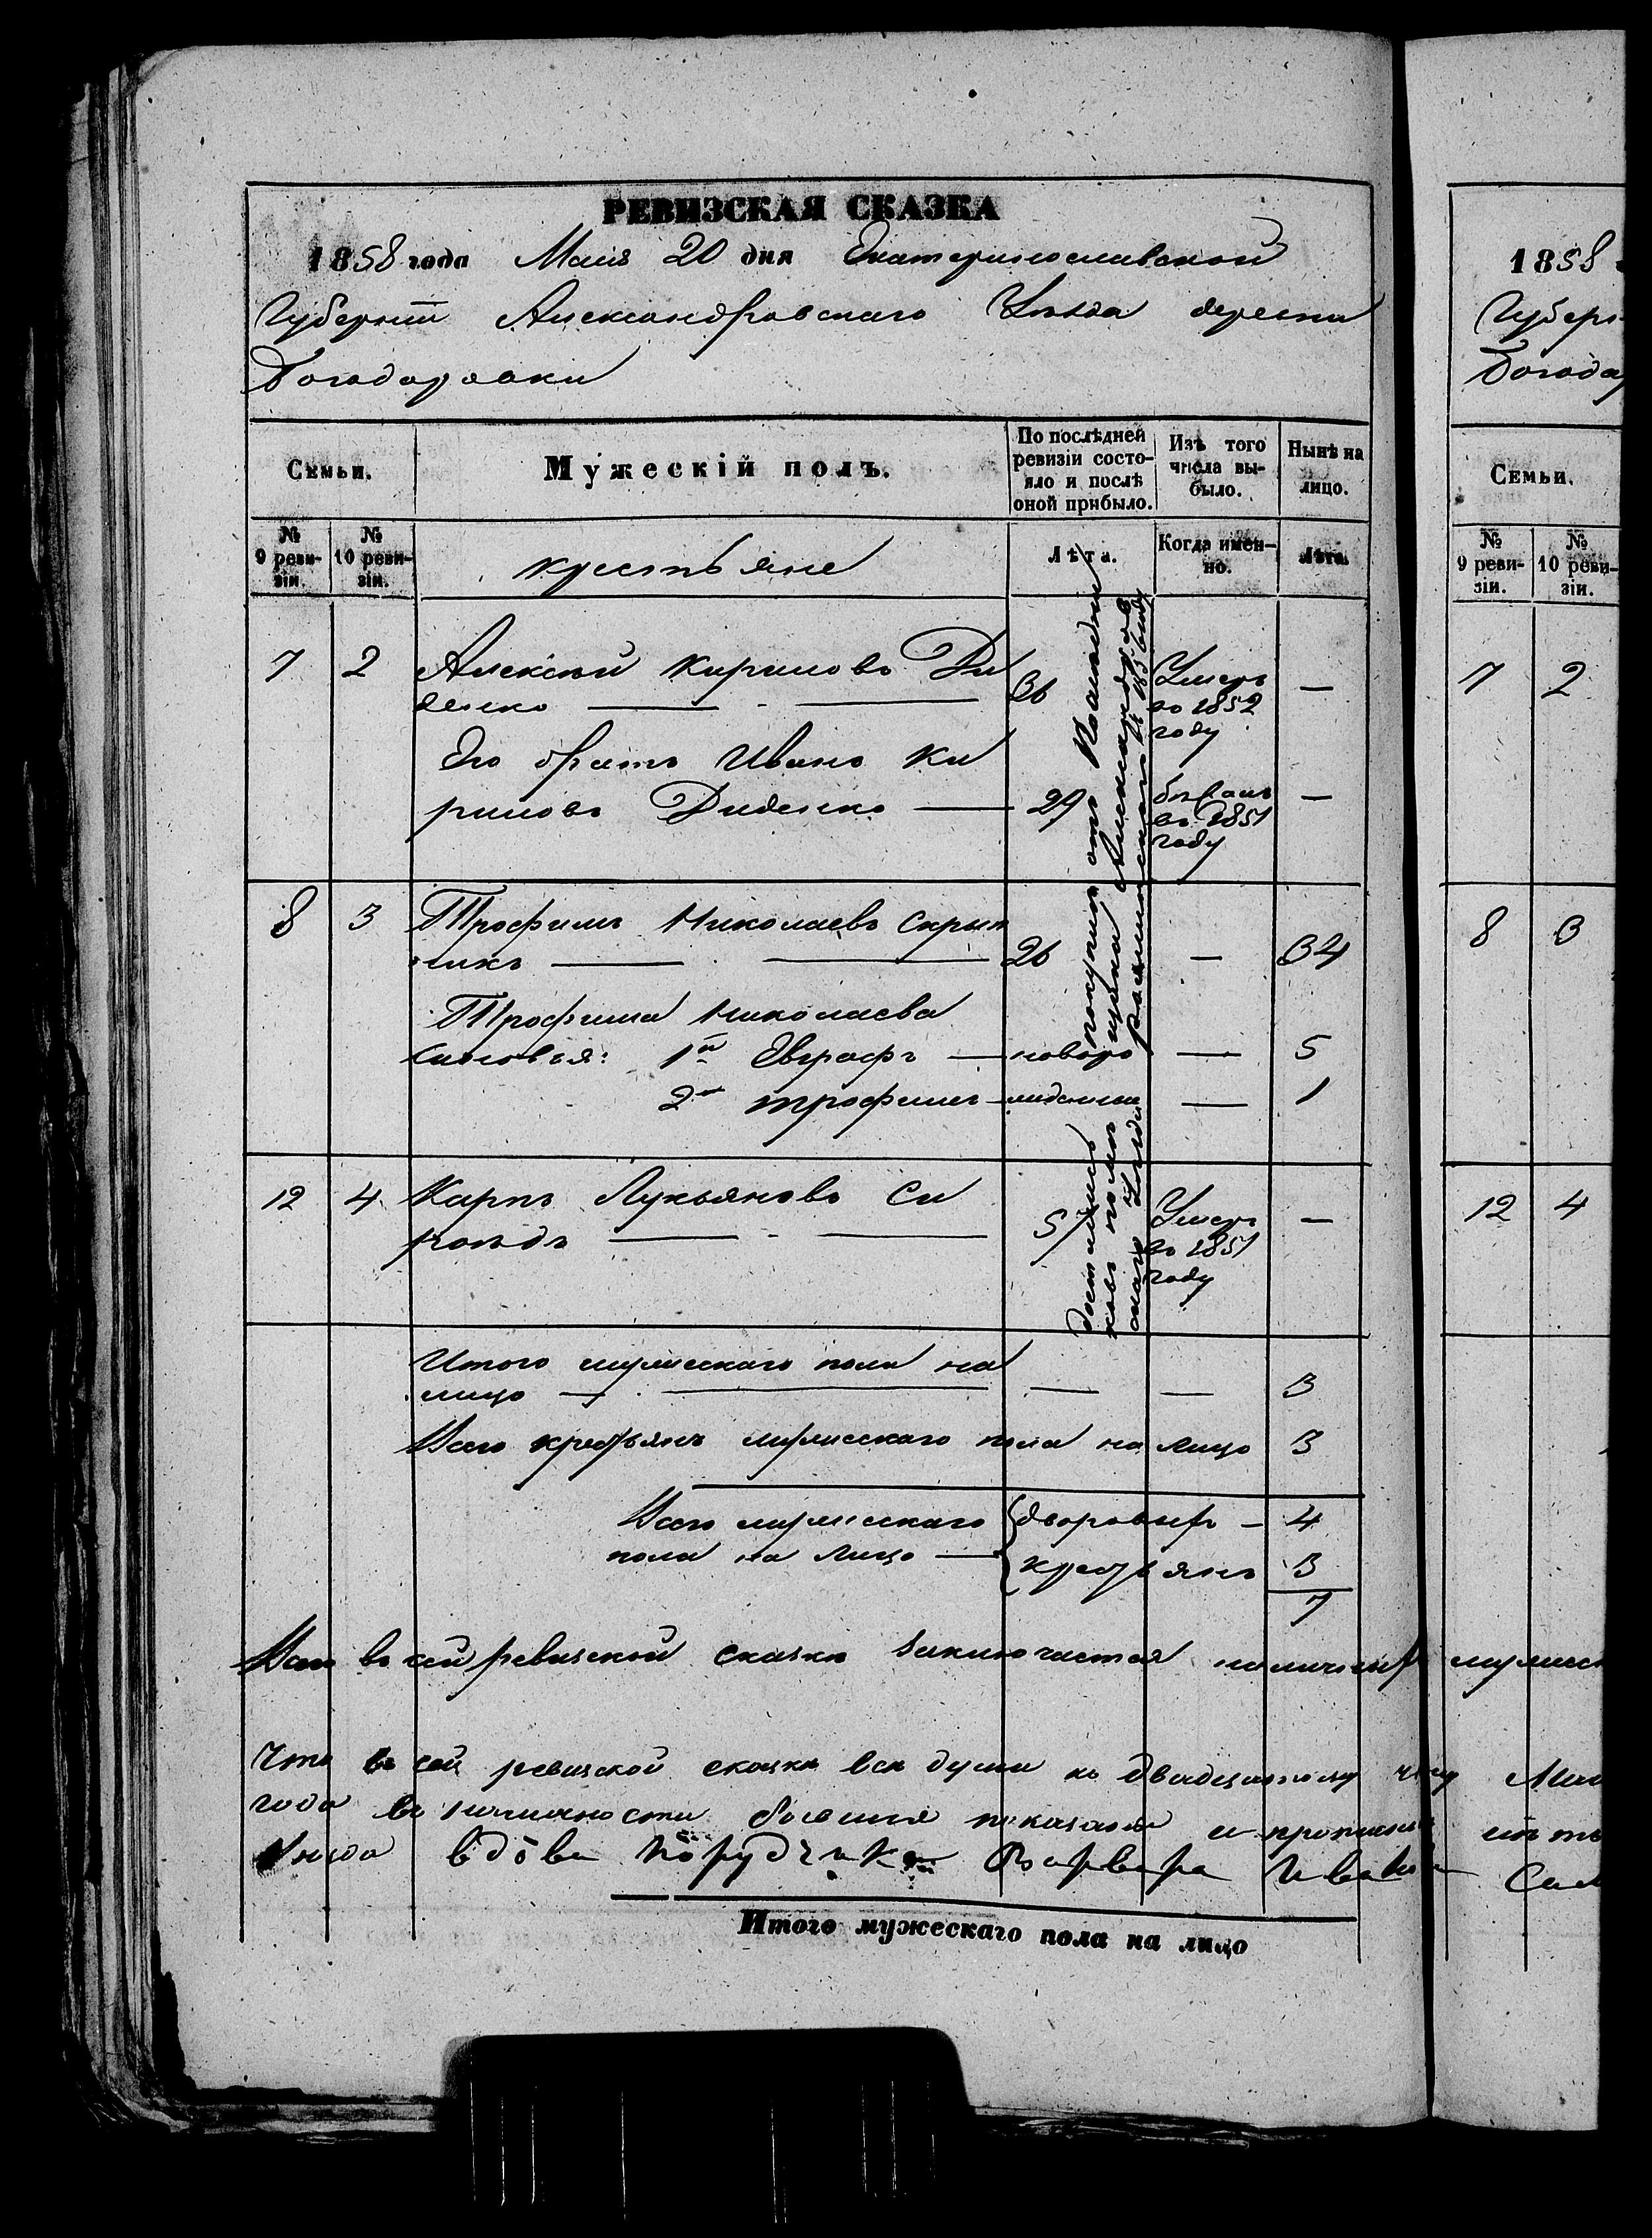 РЕВИЗСКАЯ СКАЗКА
1858 года Маія 20 дня Екатеринославской
Губерніи Александровскаго Уѣзда деревни
Богодаровки
Семьи.
Мужескій полъ.
По послѣдней ревизіи состо-
яло и послѣ
оной прибыло.
Изъ того
числа вы-
было.
Нынѣ на
лицо.
№
9 реви-
зіи.
№
10 реви-
зіи.
крестьяне
Лѣта.
Когда имен-
но.
Лѣта.
7 2 Алексѣй Кириловъ Ди
денко — 36 Умеръ въ 1852 году —
Его братъ Иванъ Ки
риловъ Диденко — 29 бѣжалъ въ 1851 году —
8 3 Трофимъ Николаевъ Скрып
никъ — 26 — 34
Трофима Николаева
сыновья: 1й Евграфъ — новоро — 5
2й Трофимъ — жденные — 1
12 4 Карпъ Лукьяновъ Си
роѣдъ — 57 Умеръ въ 1851 году —
Достались покупкою отъ
Итого мужескаго пола на
лицо — — — 3
Всего крестьянъ мужескаго пола на лицо 3
Всего мужескаго дворовыхъ — 4
пола на лицо — крестьянъ 3
7
Всего въ сей ревизской сказкѣ заключается наличныхъ
Что въ сей ревизской сказкѣ всѣ души къ двадцатому
года въ наличности бывшія показаны и
вдова Порудчика Варвара
Итого мужескаго пола на лицо
1858
Губерн
Богода
Семьи.
№
9 реви-
зіи.
№
10 реви-
зіи.
7 2
8 3
12 4
мужеск